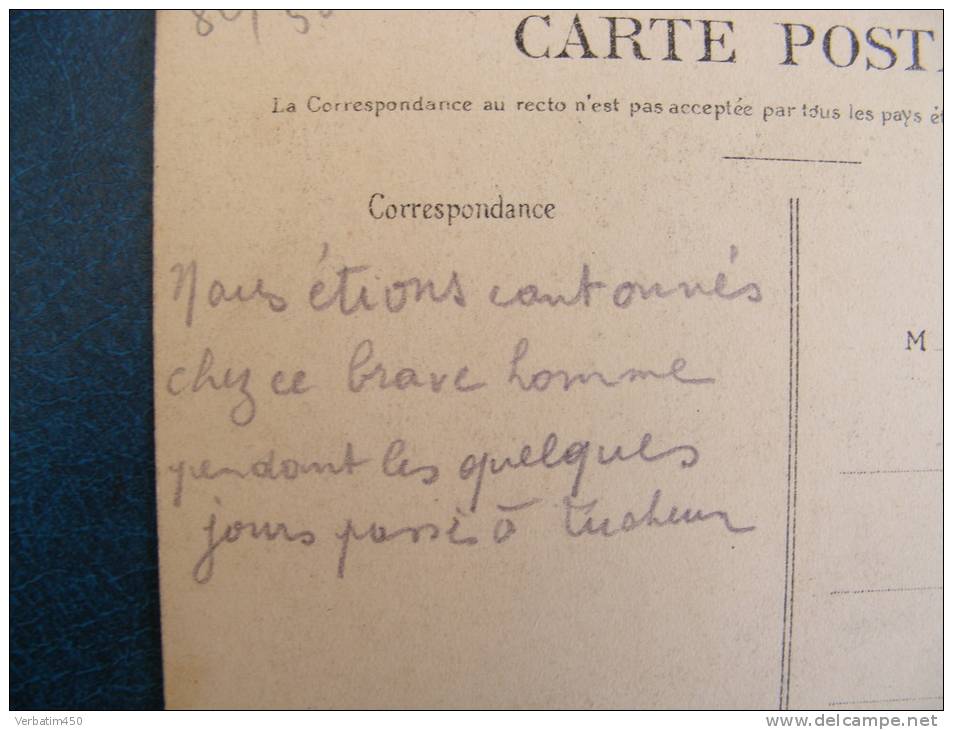 CARTE POSTA
La Correspondance au recto n'est pas acceptée par tous les pays ét
Correspondance
Nous étions cantonnés
chez ce brave homme
pendant les quelques
jours passés à
M
Verbatim450
www.delcampe.net